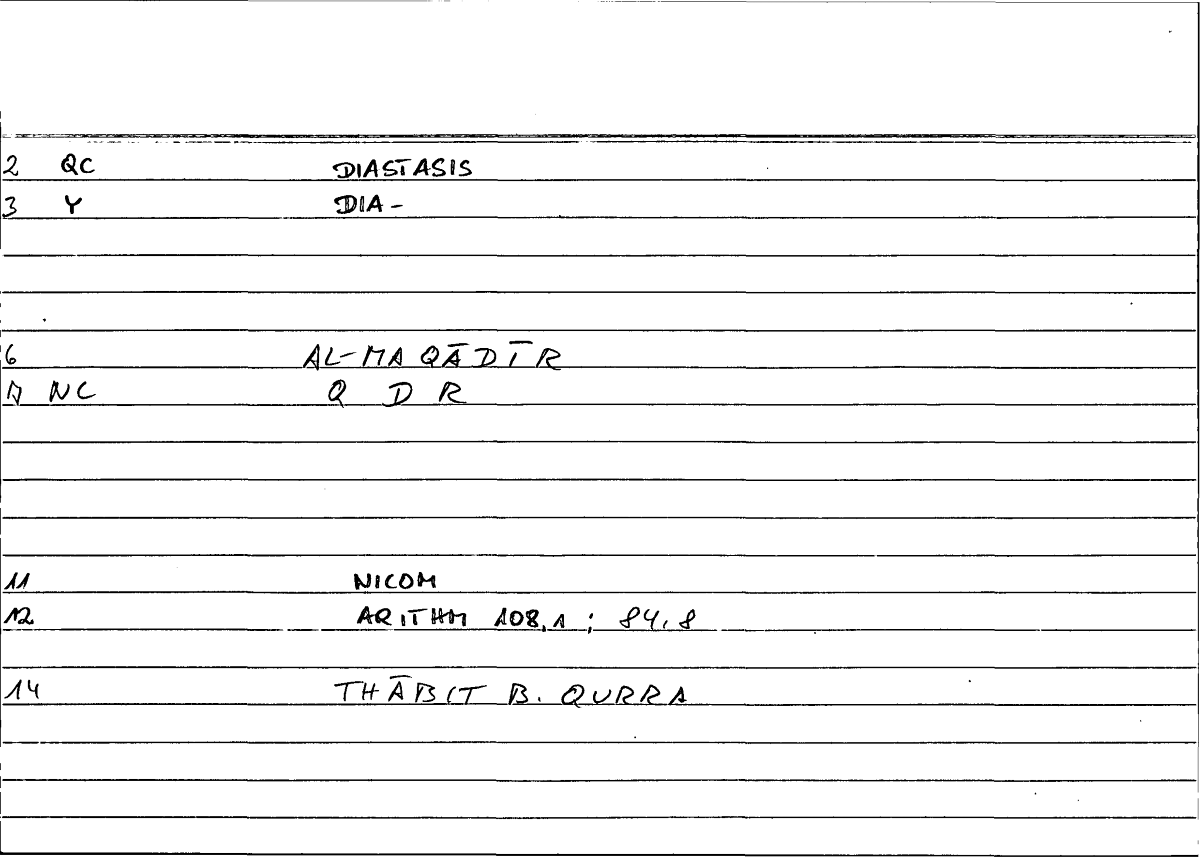 2 QC DIASTASIS
3 Y DIA-
6 AL-MAQĀDĪR
NC Q D R
11 NICOM
12 ARITHM 108,1 ; 84,8
14 THĀBIT B. QURRA